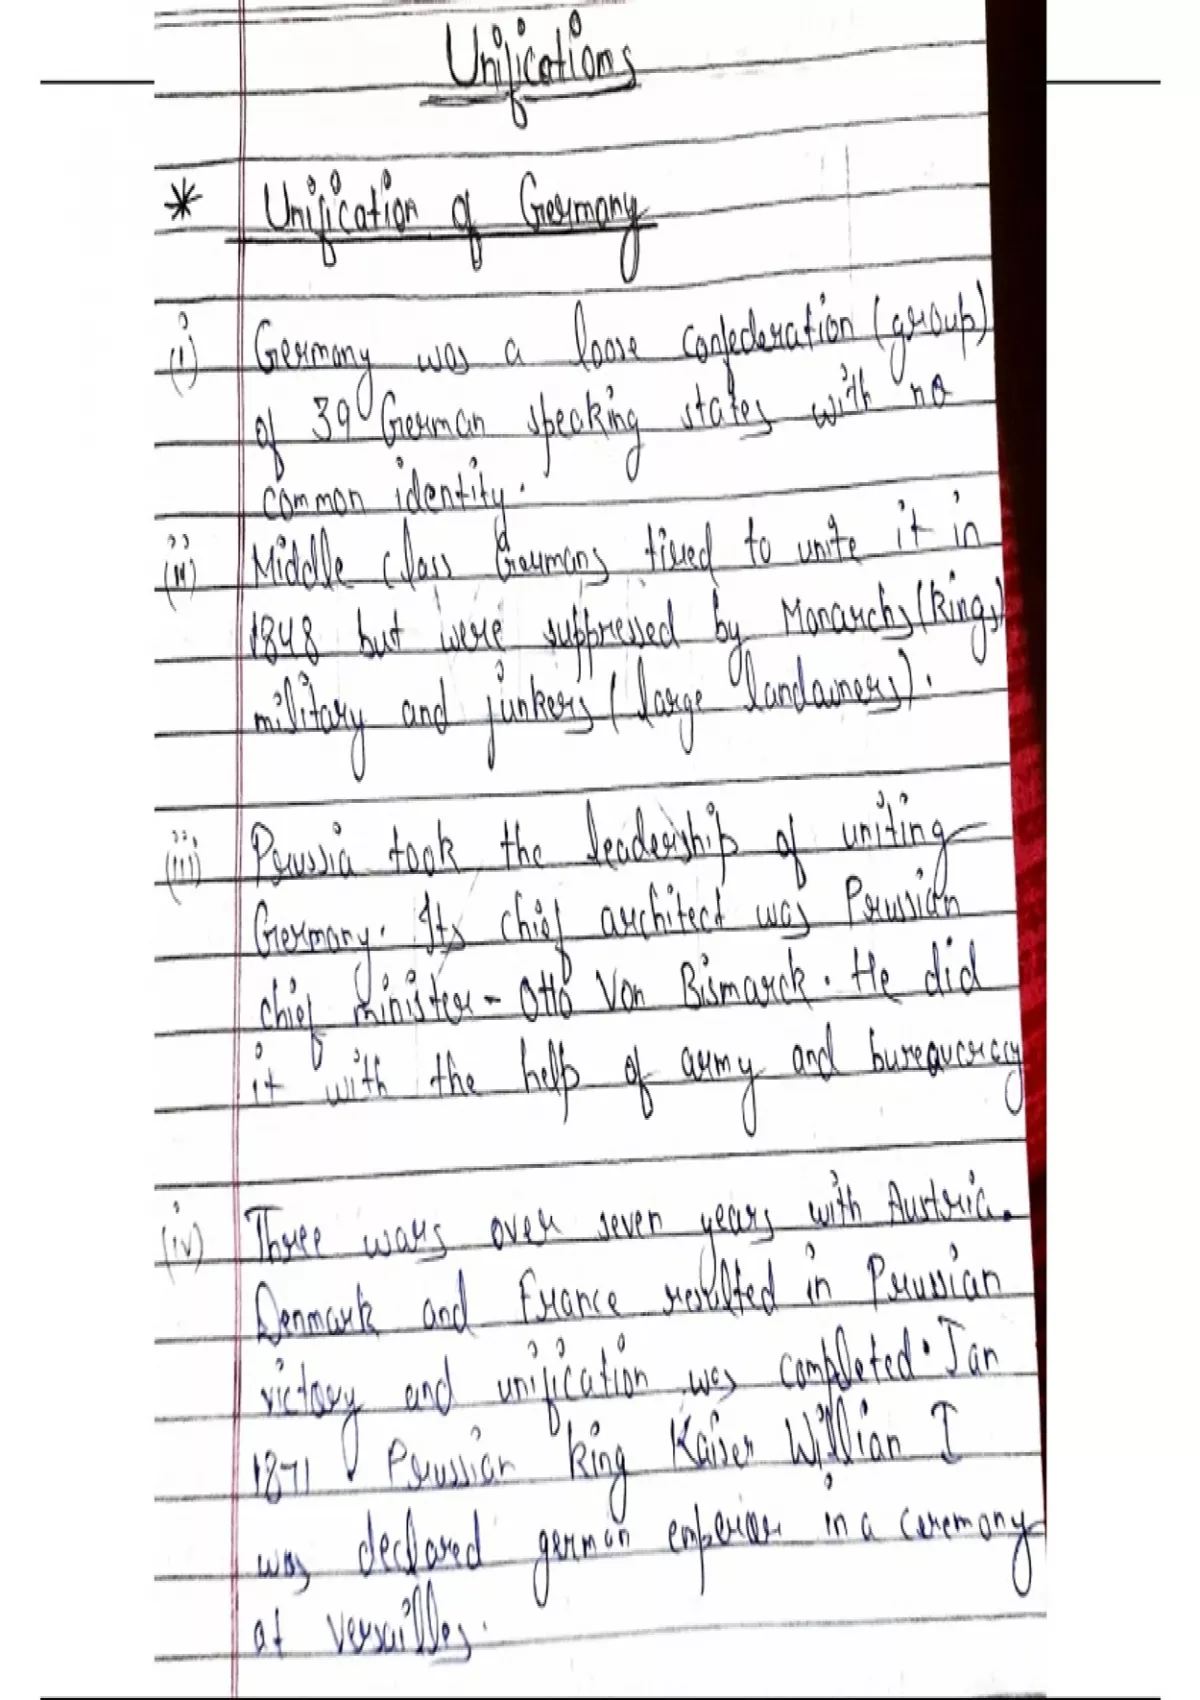 Unifications
* Unification of Germany
(i) Germany was a loose confederation (group)
of 39 German speaking states with no
common identity.
(ii) Middle class Germans tired to unite it in
1848 but were suppressed by Monarchs (kings)
military and junkers (large landowners).
(iii) Prussia took the leadership of uniting
Germany. Its chief architect was Prussian
chief minister - Otto Von Bismarck. He did
it with the help of army and bureaucracy
(iv) Three wars over seven years with Austria.
Denmark and France resulted in Prussian
victory and unification was completed. Jan
1871 Prussian king Kaiser Willian I
was declared german emperior in a ceremony
at versailles.